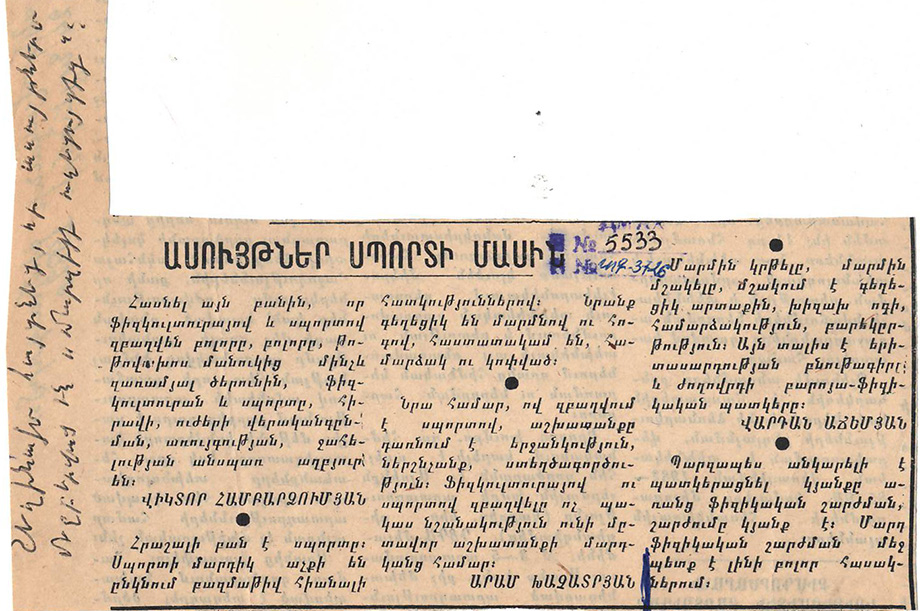 ԱՍՈՒՅԹՆԵՐ ՍՊՈՐՏԻ ՄԱՍԻՆ
№ 5533
№
Հասնել այն բանին, որ
ֆիզկուլտուրայով և սպորտով
զբաղվեն բոլորը, բոլորը, թո-
թովախոս մանուկից մինչև
զառամյալ ծերունին, ֆիզ-
կուլտուրան և սպորտը, հի-
րավի, ուժերի վերականգըն-
ման, առույգության, ջահե-
լության անսպառ աղբյուր
են:
ՎԻԿՏՈՐ ՀԱՄԲԱՐՁՈՒՄՅԱՆ
Հրաշալի բան է սպորտը:
Սպորտի մարդիկ աչքի են
ընկնում բազմաթիվ հիանալի
հատկություններով: Նրանք
գեղեցիկ են մարմնով ու հո-
գով, հաստատակամ են, հա-
մարձակ ու կոփված:
Նրա համար, ով զբաղվում
է սպորտով, աշխատանքը
դառնում է երջանկություն,
ներշնչանք, ստեղծագործու-
թյուն: Ֆիզկուլտուրայով ու
սպորտով զբաղվելը ոչ պա-
կաս նշանակություն ունի մը-
տավոր աշխատանքի մարդ-
կանց համար:
ԱՐԱՄ ԽԱՉԱՏՐՅԱՆ
Մարմին կրթելը, մարմին
մշակելը, մշակում է գեղե-
ցիկ արտաքին, խիզախ ոգի,
համարձակություն, բարեկըր-
թություն: Այն տալիս է երի-
տասարդության բնութագիրը
և ժողովրդի բարոյա-ֆիզի-
կական պատկերը:
ՎԱՐԴԱՆ ԱՃԵՄՅԱՆ
Պարզապես անկարելի է
պատկերացնել կյանքը ա-
ռանց ֆիզիկական շարժման,
շարժումը կյանք է: Մարդ
ֆիզիկական շարժման մեջ
պետք է լինի բոլոր հասակ-
ներում: